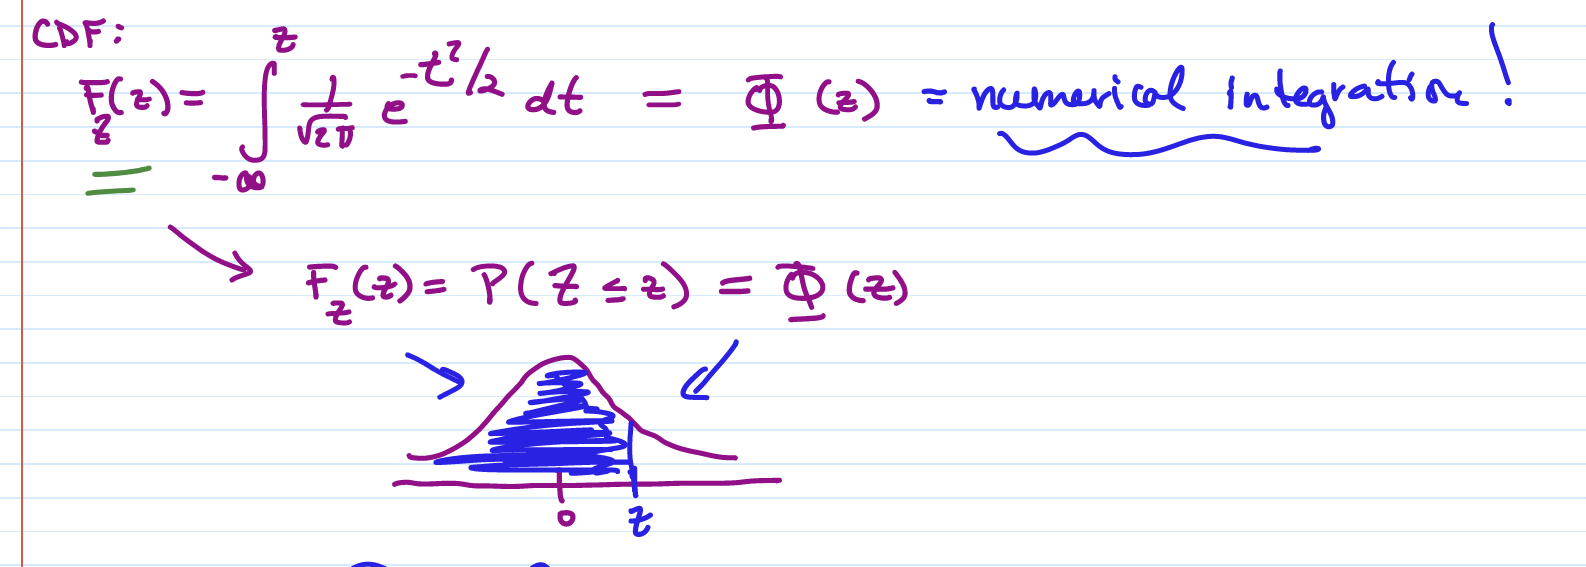 CDF:
F_Z(z) = ∫_{-∞}^{z} 1/√(2π) e^{-t²/2} dt = Φ(z) = numerical integration!
F_Z(z) = P(Z ≤ z) = Φ(z)
0 z